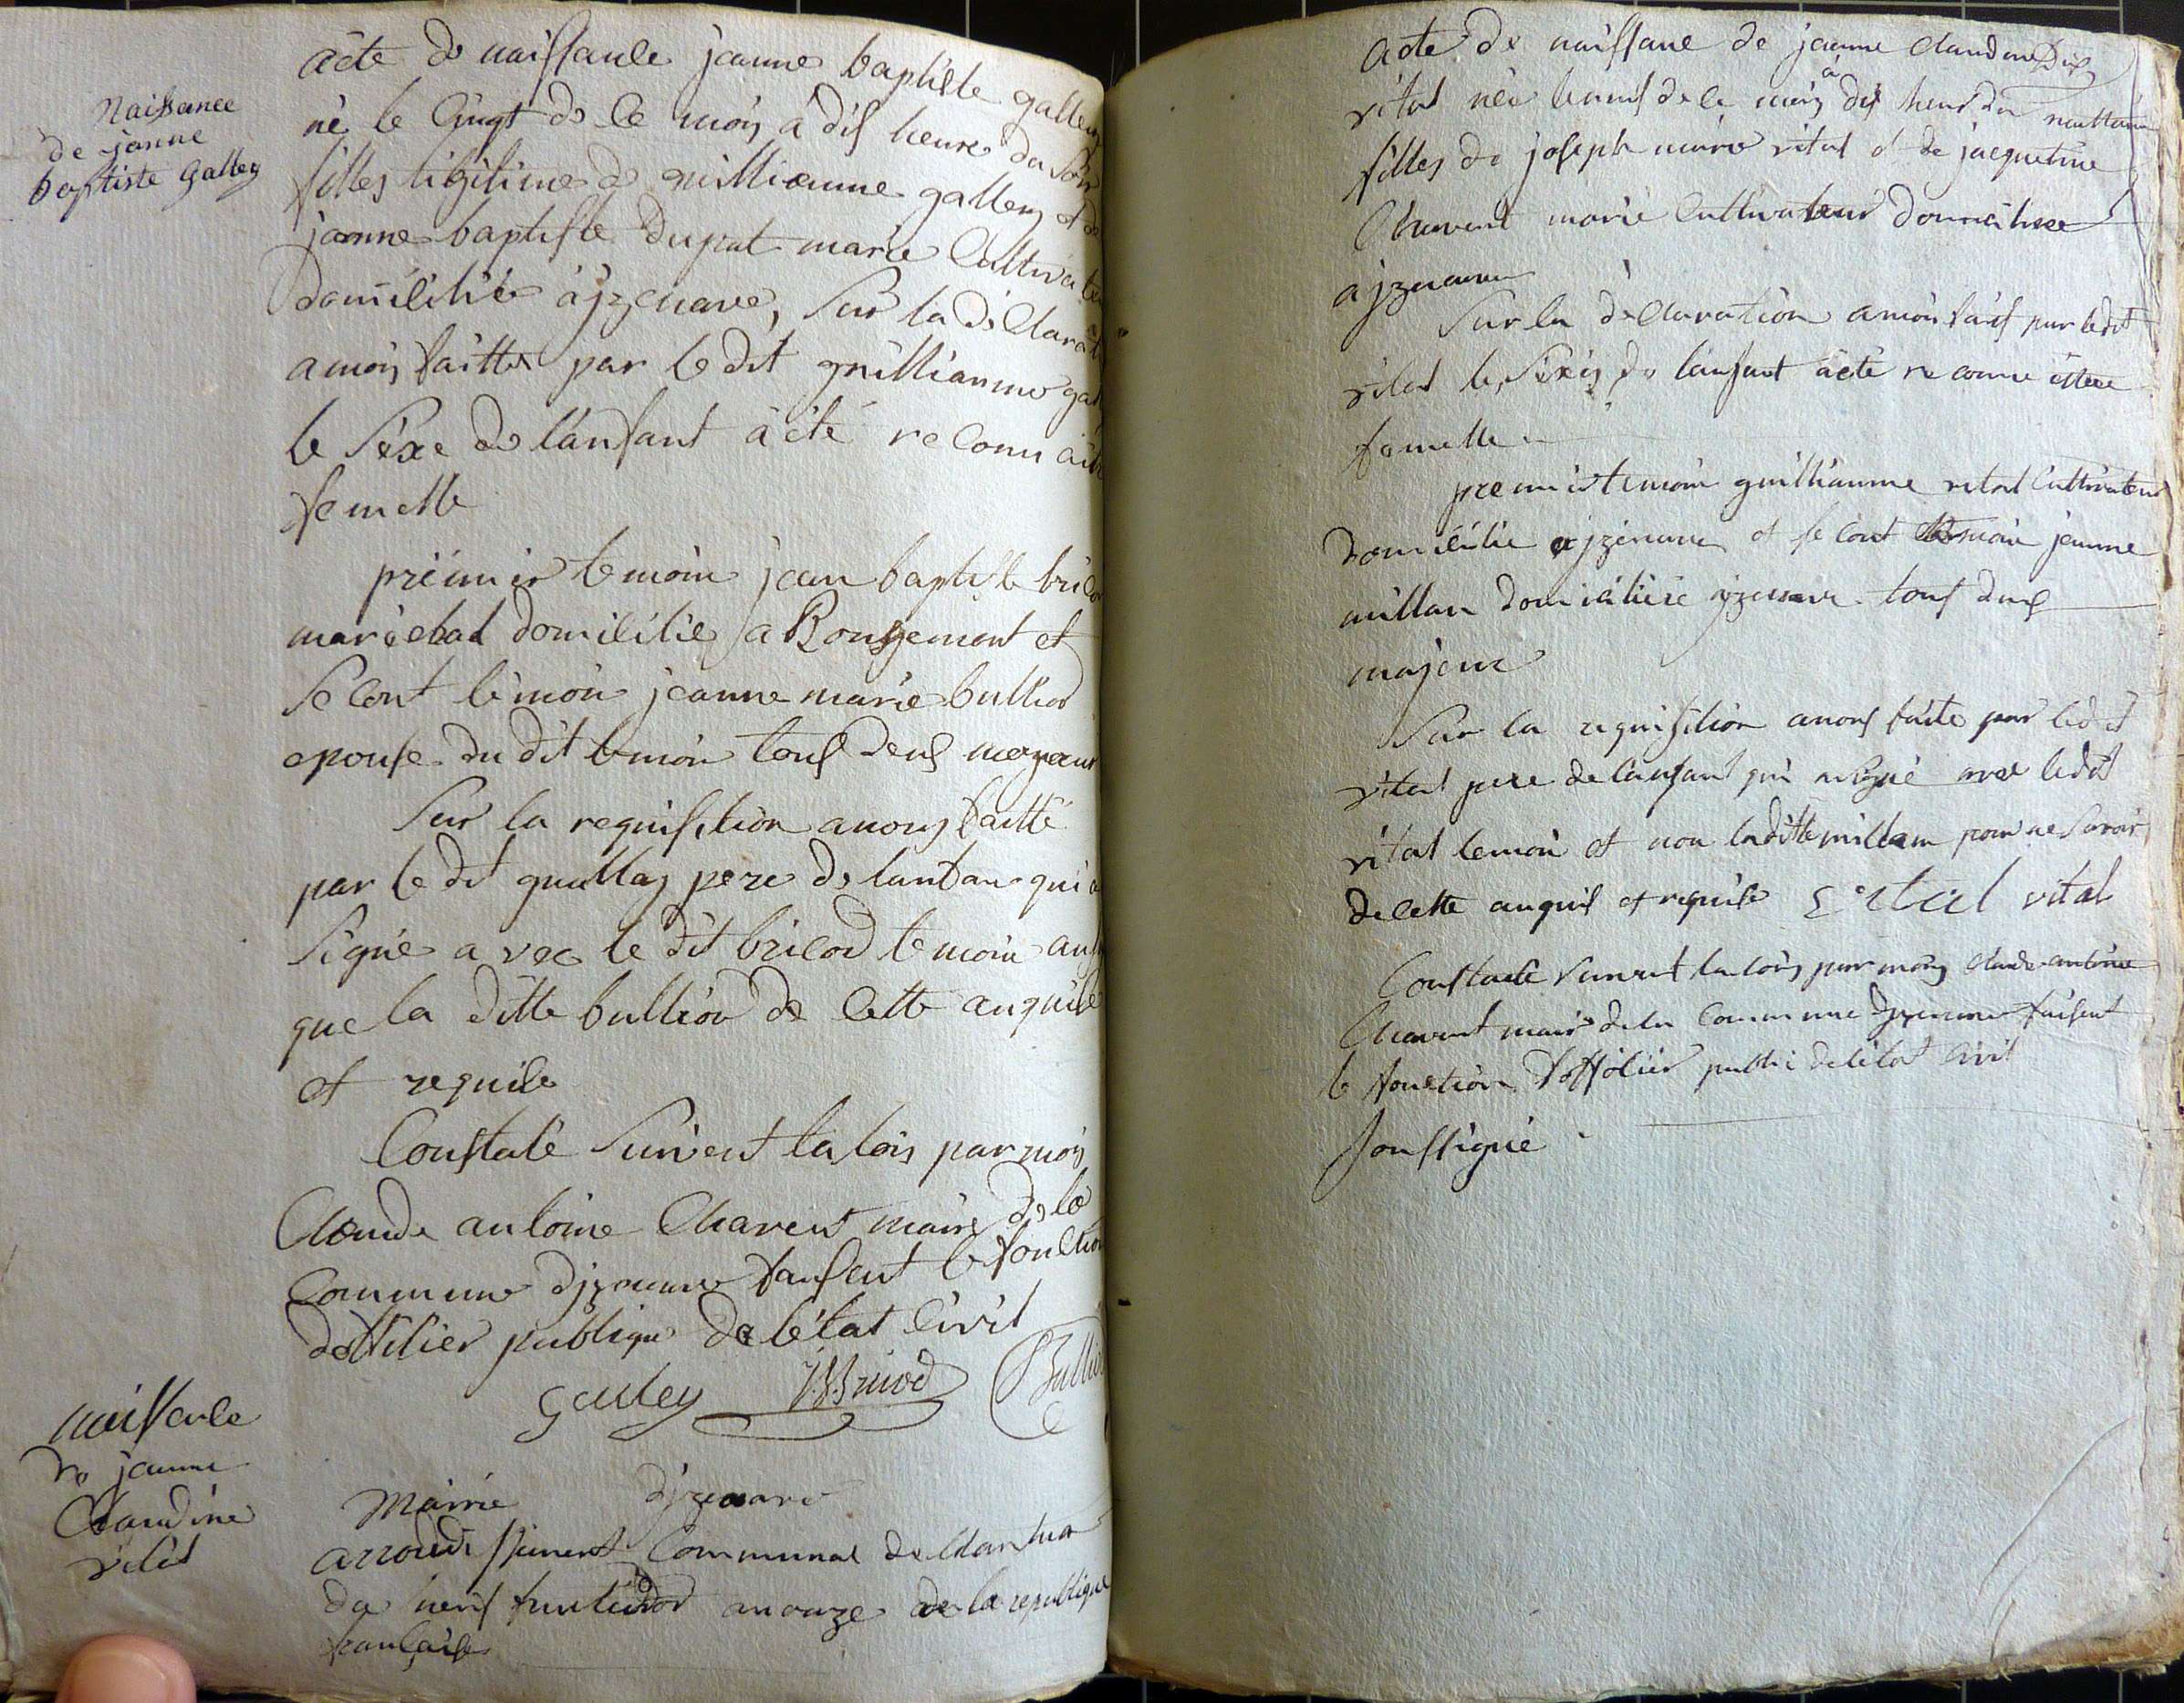 Naissance
de janne
baptiste galley
acte de naissance jeanne baptiste galley
né le vingt de ce mois à dis heure du soir
fillesligitime de guilliaume galley et de
janne baptiste dupat marie Cultivate
domicilié à jzenave, sur la déClarat
a mois faitte par le dit guilliaume gal
le séxe de l'anfant à été reConu
femelle
prémier temoin jean baptiste bricod
maréchal domicilié a Rougemont et
seCont témoin jeanne marie bulliod
epouse du dit temoin tous deus mageur
Sur la requisition a nous faitte
par le dit guallay pere de lanfan qui a
signé avec le dit bricod temoin
que la ditte bulliod de Cette enquise
et requise
Constaté suivent la lois par mois
Claude antoine Chavent maire de la
Commune djzenave faisent le fonction
dofficier publique de l'état Civil
galley JBBricod Bullio
naissance
de jeanne
Claudine
vital
Mairie djzenave
arrondissiment Communal de Nantua
du neuf fructidor an onze de la republique
francaise
acte de naissance de jeanne claudine
vital née le neuf de ce mois à dis heur du
filles de joseph marie vital et de jacqueline
Chavent marié Cultivateur domicilieé
à jzenave
Sur la déclaration a moi fait par ledit
vital le séxes de lanfant à été reconue
femelle
premier temoin guilliaume vital Cultivateur
domicilié a jzenave et seCont temoin jeanne
millan domiciliée jzenave tous deus
majeur
Sur la requisition a nous faite par ledit
vital pere de l'anfant qui a signé avec ledit
vital temoin et non laditte millan pour ne savoir
de cette enquis et requise vital vital
Constaté suivent la lois par mois claude antoine
Chavent maire de la Commune djzenave faisent
le fonction d'officier public de létat Civil
soussigné